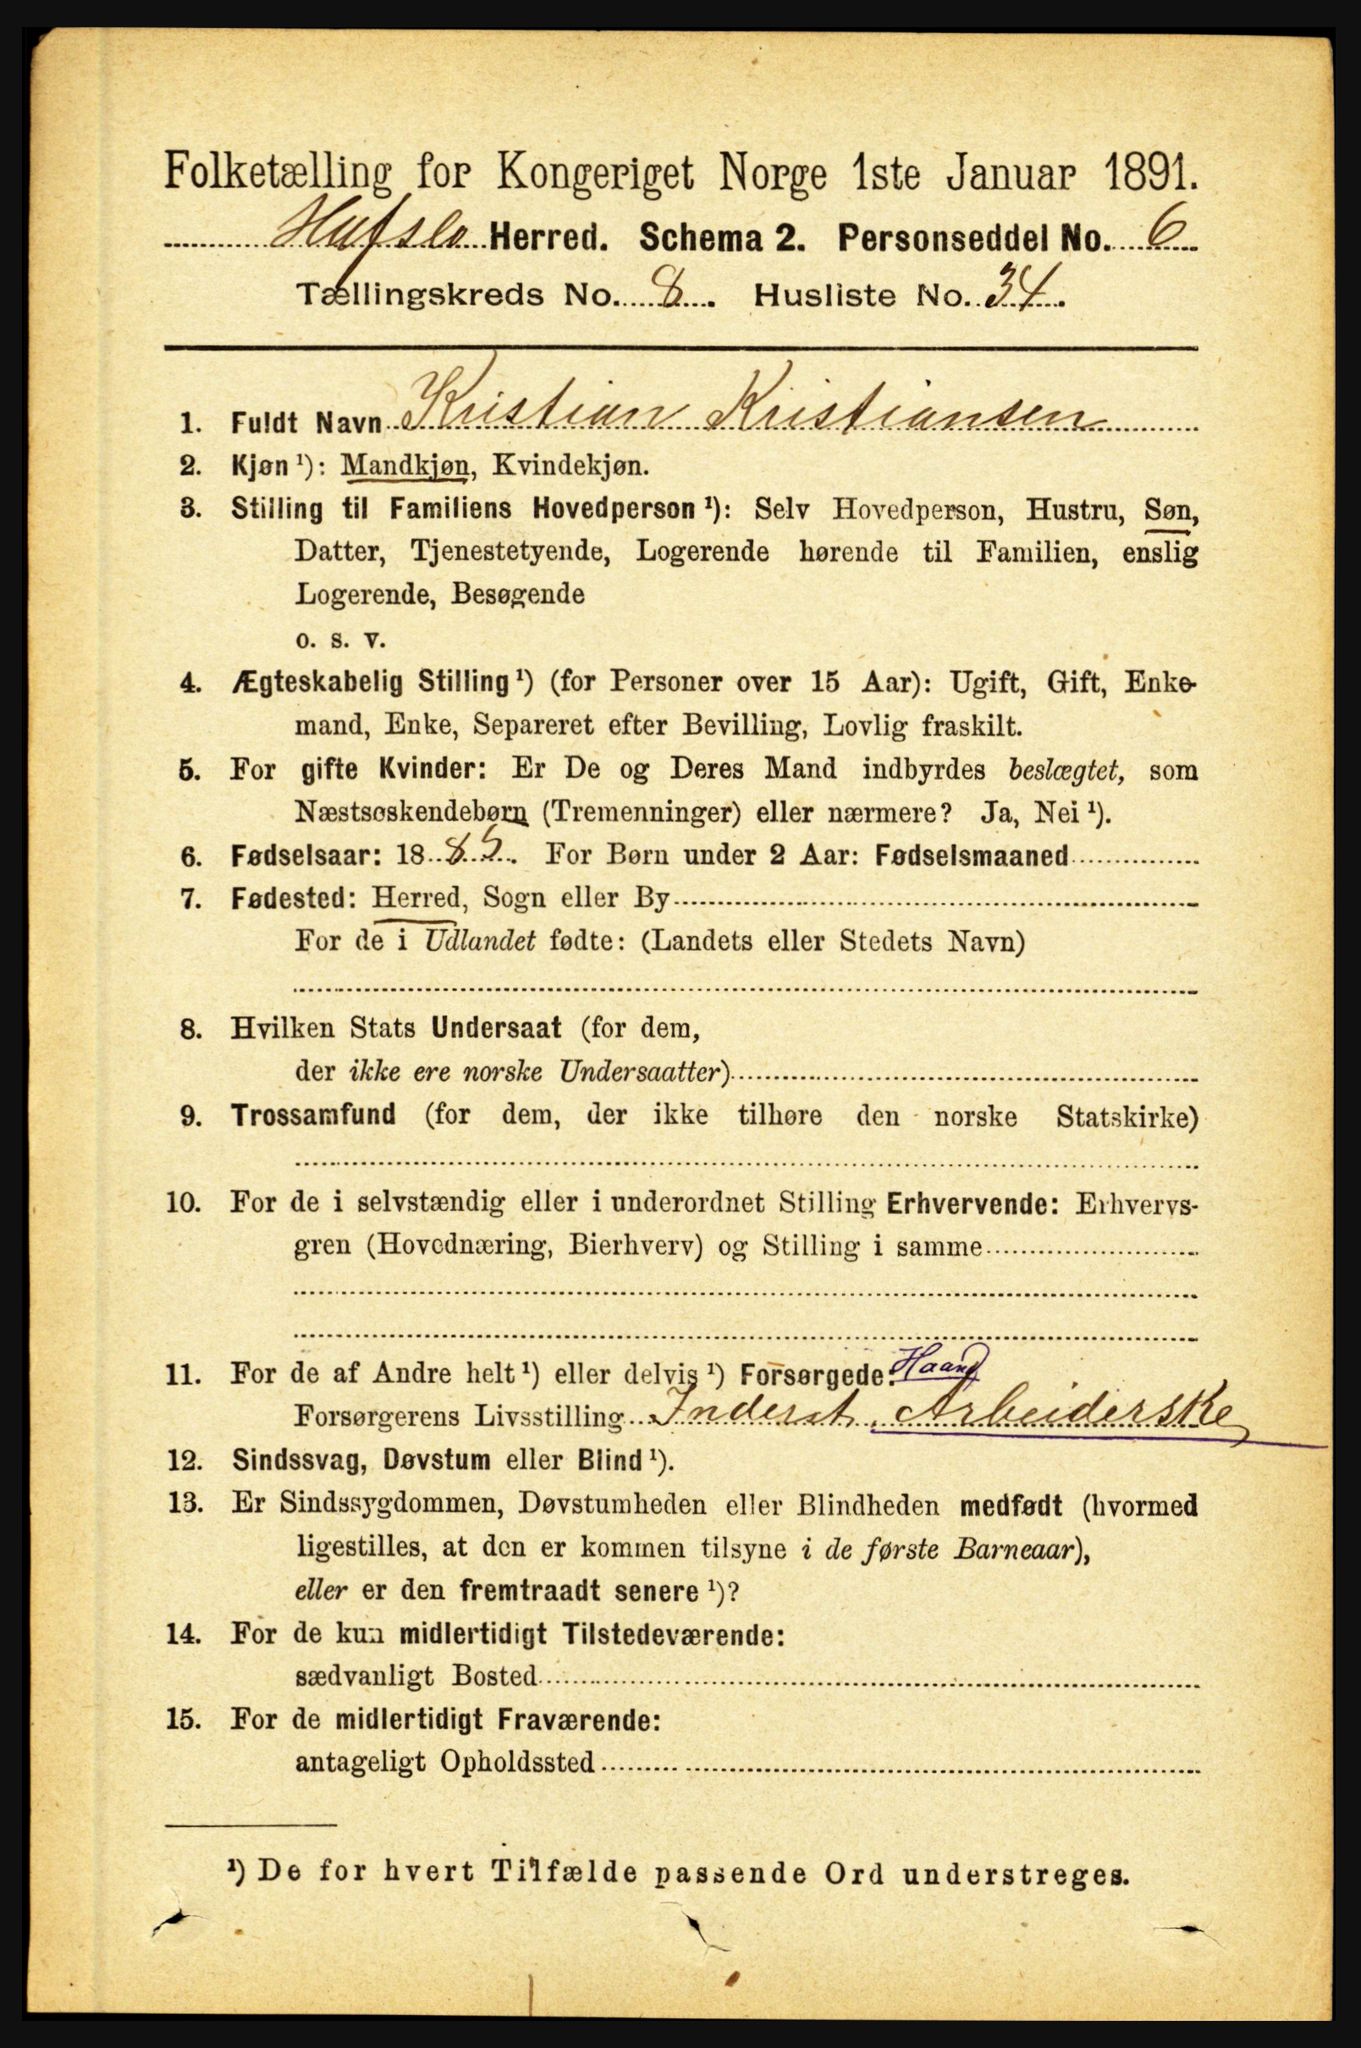 Folketælling for Kongeriget Norge 1ste Januar 1891.
Hafslo Herred. Schema 2. Personseddel No. 6
Tællingskreds No. 8. Husliste No. 34.
1. Fuldt Navn Kristian Kristiansen
2. Kjøn¹): Mandkjøn, Kvindekjøn.
3. Stilling til Familiens Hovedperson¹): Selv Hovedperson, Hustru, Søn,
Datter, Tjenestetyende, Logerende hørende til Familien, enslig
Logerende, Besøgende
o. s. v.
4. Ægteskabelig Stilling¹) (for Personer over 15 Aar): Ugift, Gift, Enke-
mand, Enke, Separeret efter Bevilling, Lovlig fraskilt.
5. For gifte Kvinder: Er De og Deres Mand indbyrdes beslægtet, som
Næstsøskendebørn (Tremenninger) eller nærmere? Ja, Nei¹).
6. Fødselsaar: 1885. For Børn under 2 Aar: Fødselsmaaned
7. Fødested: Herred, Sogn eller By
For de i Udlandet fødte: (Landets eller Stedets Navn)
8. Hvilken Stats Undersaat (for dem,
der ikke ere norske Undersaatter)
9. Trossamfund (for dem, der ikke tilhøre den norske Statskirke)
10. For de i selvstændig eller i underordnet Stilling Erhvervende: Erhvervs-
gren (Hovednæring, Bierhverv) og Stilling i samme
11. For de af Andre helt¹) eller delvis¹) Forsørgede: Haand
Forsørgerens Livsstilling Inderst, Arbeiderske
12. Sindssvag, Døvstum eller Blind¹).
13. Er Sindssygdommen, Døvstumheden eller Blindheden medfødt (hvormed
ligestilles, at den er kommen tilsyne i de første Barneaar),
eller er den fremtraadt senere¹)?
14. For de kun midlertidigt Tilstedeværende:
sædvanligt Bosted
15. For de midlertidigt Fraværende:
antageligt Opholdssted
¹) De for hvert Tilfælde passende Ord understreges.